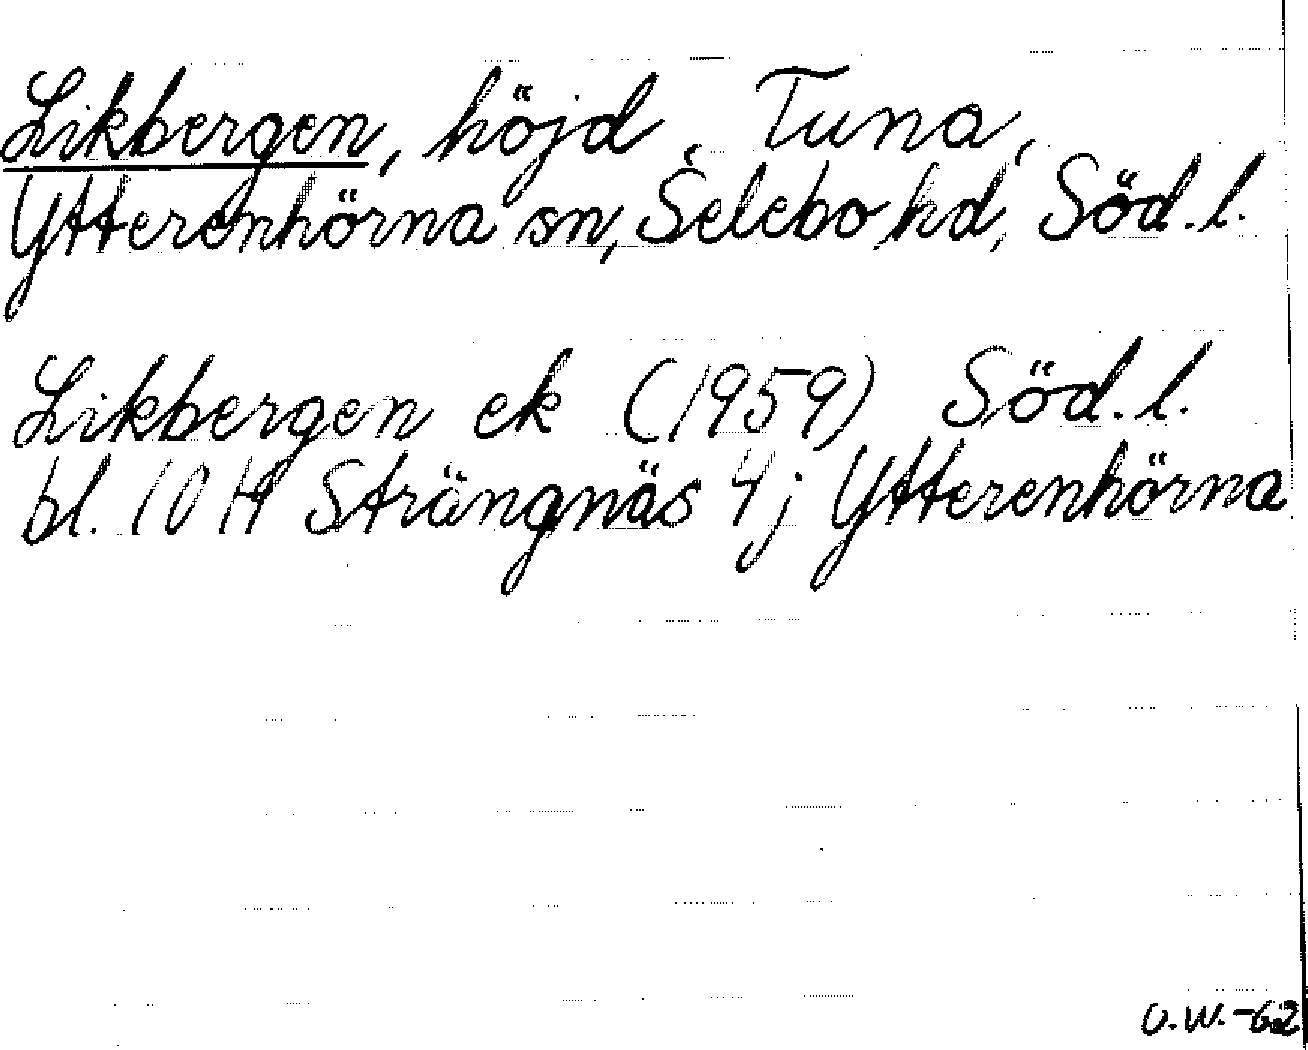 Likbergen, höjd, Tuna,
Ytterenhörna sn, Selebo hd, Söd. l.
Likbergen ek (1959) Söd. l.
bl. 10 H Strängnäs 4 j Ytterenhörna
O.W.-62